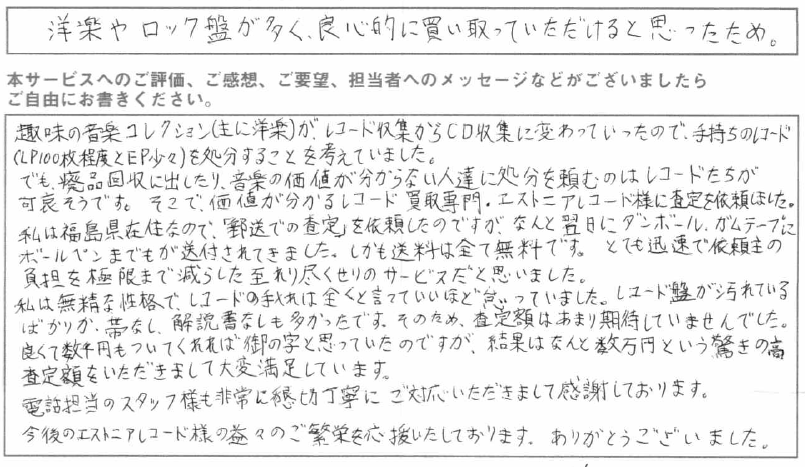 洋楽やロック盤が多く、良心的に買い取っていただけると思ったため。
本サービスへのご評価、ご感想、ご要望、担当者へのメッセージなどがございましたら
ご自由にお書きください。
趣味の音楽コレクション(主に洋楽)が、レコード収集からCD収集に変わっていったので、手持ちのレコード
(LP100枚程度とEP少々)を処分することを考えていました。
でも、廃品回収に出したり、音楽の価値が分からない人達に処分を頼むのはレコードたちが
可哀そうです。そこで、価値が分かるレコード買取専門・エストニアレコード様に査定を依頼しました。
私は福島県在住なので、「郵送での査定」を依頼したのですが、なんと翌日にダンボール、ガムテープに
ボールペンまでもが送付されてきました。しかも送料は全て無料です。とても迅速で依頼主の
負担を極限まで減らした至れり尽くせりのサービスだと思いました。
私は無精な性格で、レコードの手入れは全くと言っていいほど怠っていました。レコード盤が汚れている
ばかりか、帯なし、解説書なしも多かったです。そのため、査定額はあまり期待していませんでした。
良くて数千円もついてくれれば御の字と思っていたのですが、結果はなんと数万円という驚きの高
査定額をいただきまして大変満足しています。
電話担当のスタッフ様も非常に懇切丁寧にご対応いただきまして感謝しております。
今後のエストニアレコード様の益々のご繁栄を応援いたしております。ありがとうございました。